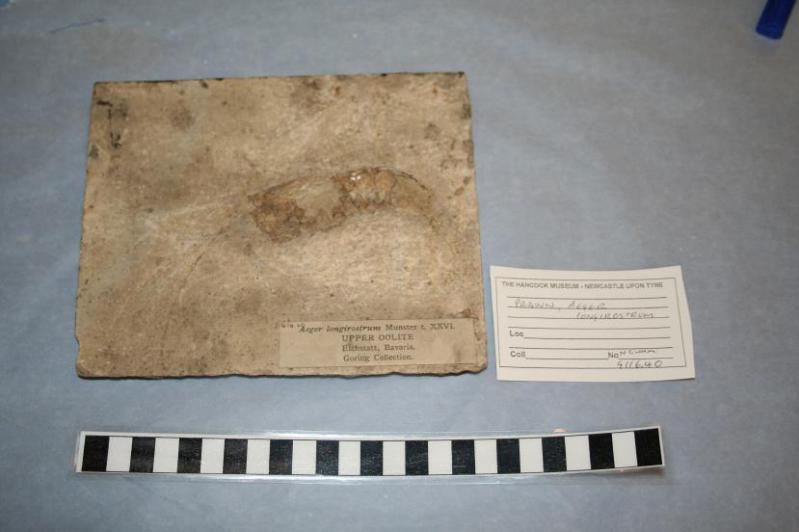 Aeger longirostrum Munster t. XXVI.
UPPER OOLITE
Eichstatt, Bavaria.
Goring Collection.
THE HANCOCK MUSEUM - NEWCASTLE UPON TYNE
PRAWN, AEGER
LONGIROSTRUM
Loc
Coll No NEWHM
G116.40